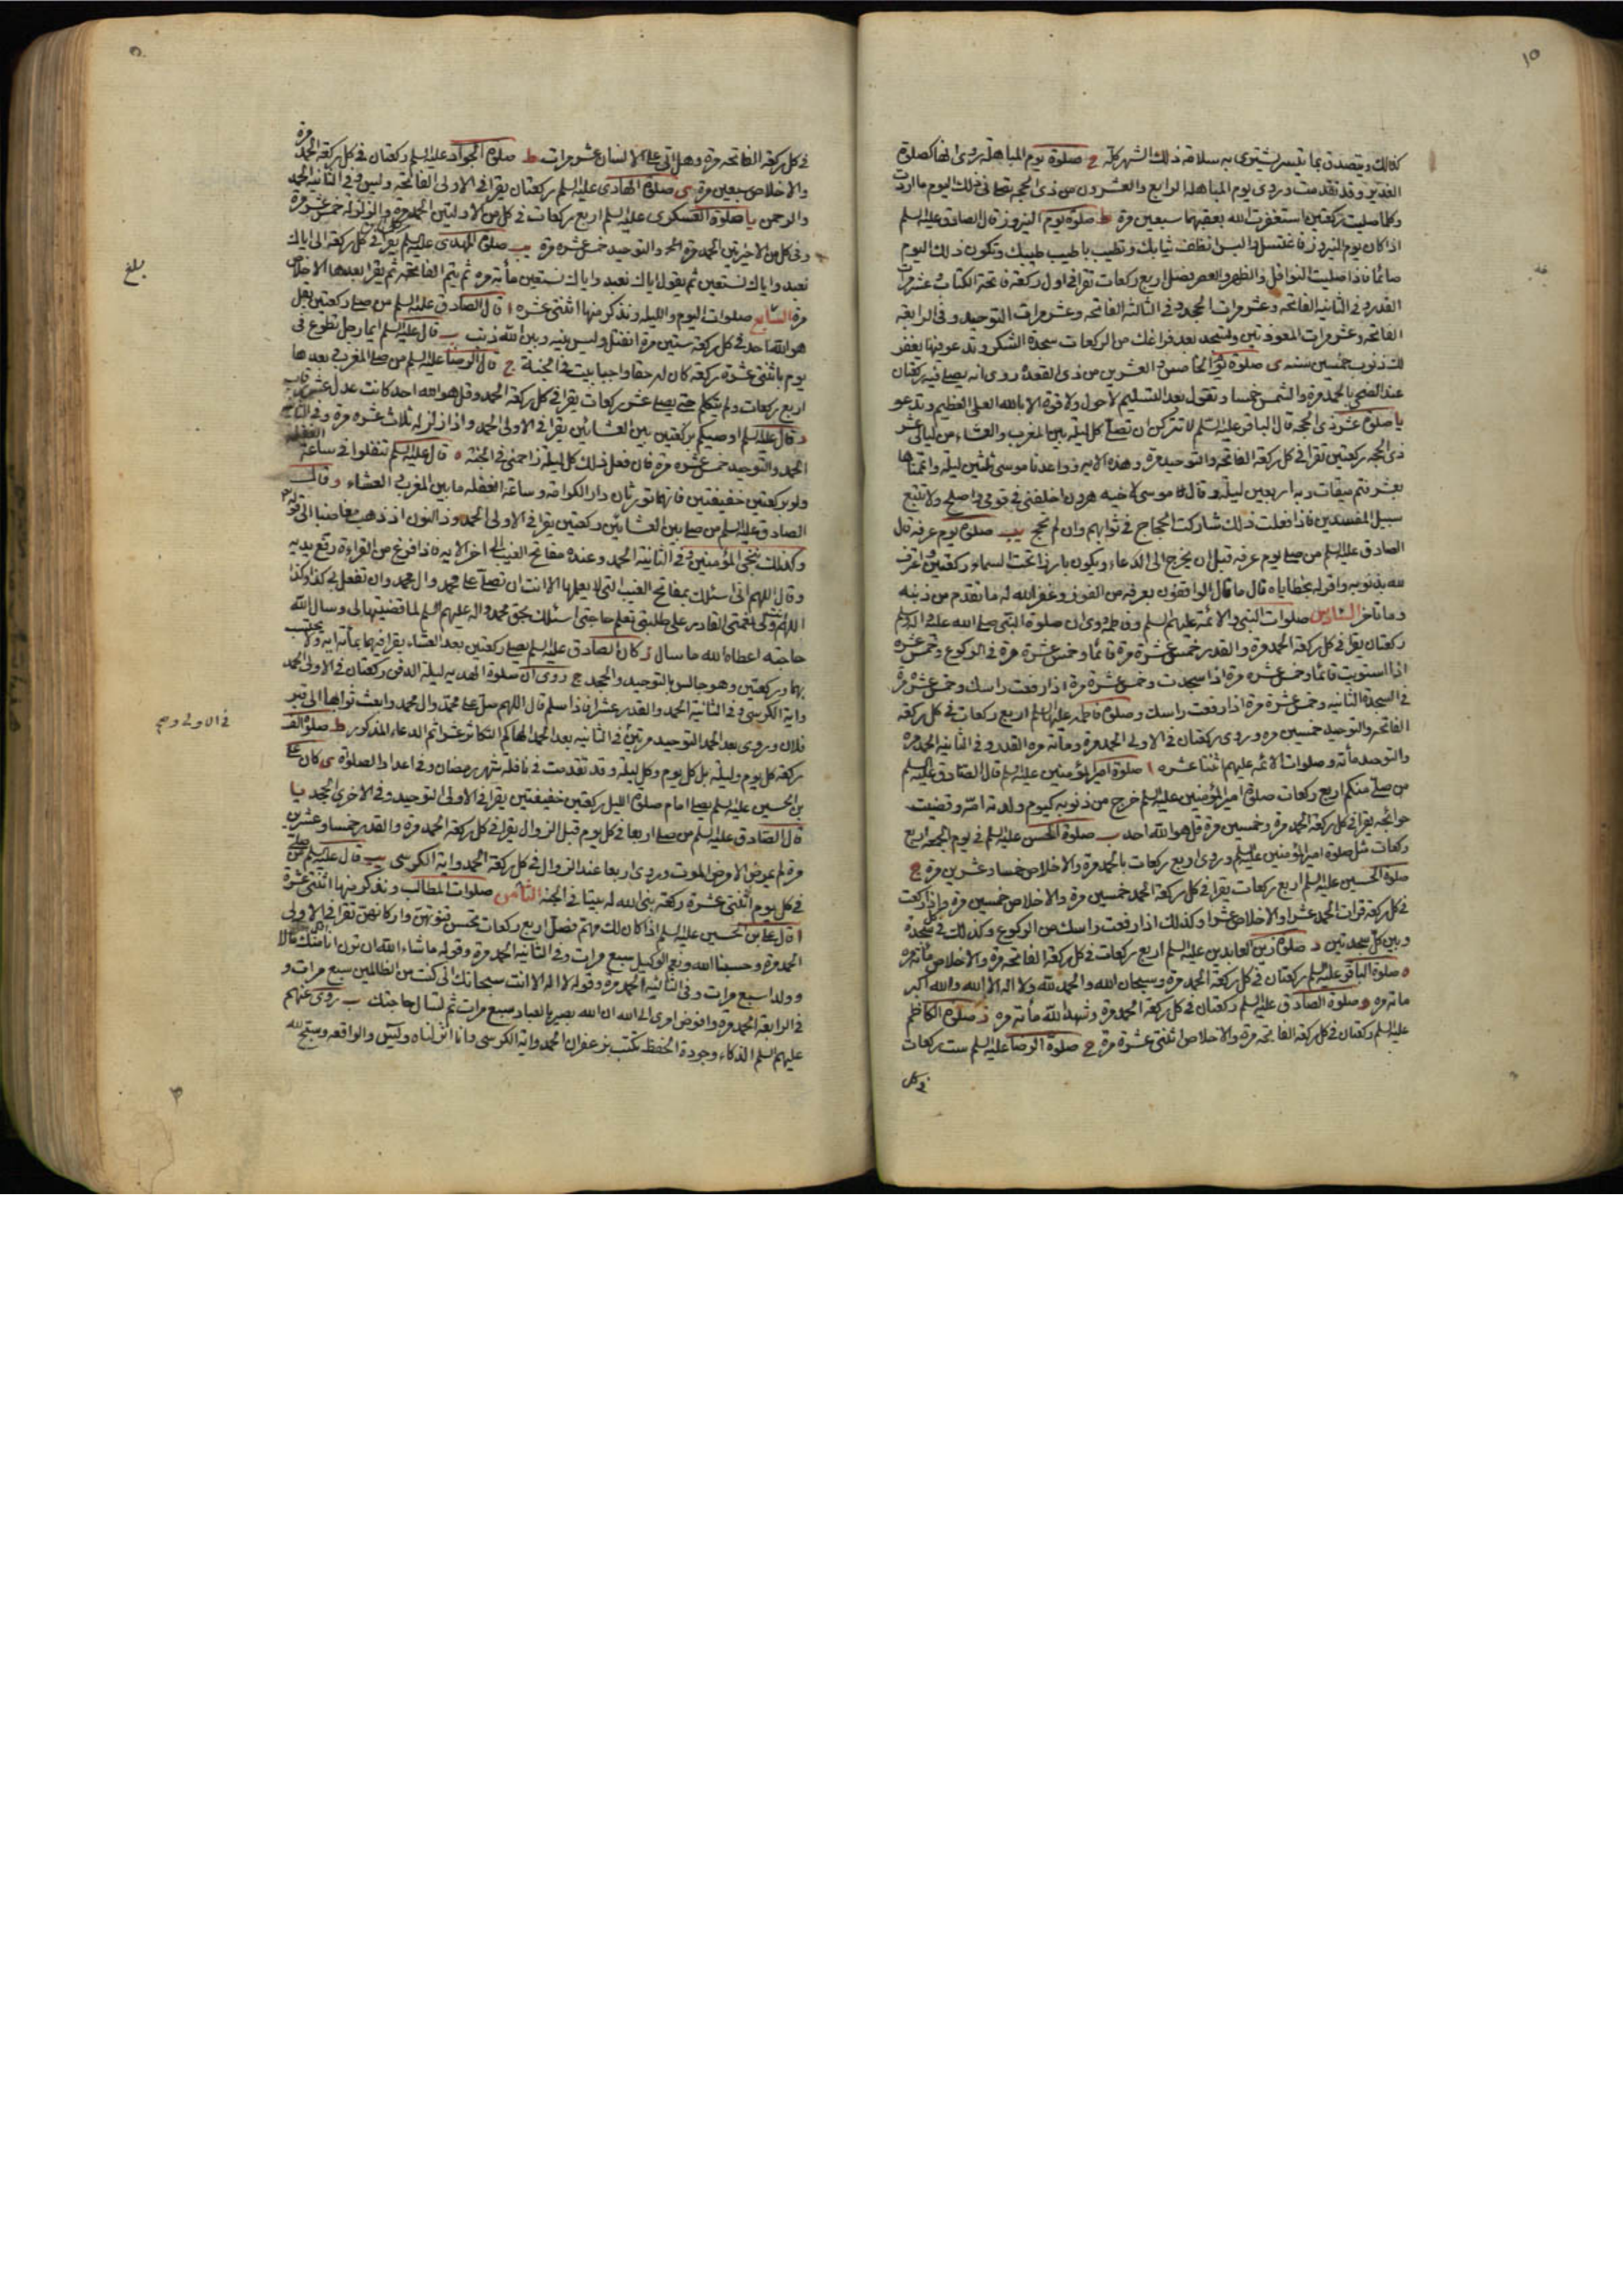 كذلك ويتصدق بما يتيسر يشترى به سلامة ذلك الشهر كله ح صلوة يوم المباهلة روى انها كصلوة
الغدير وقد تقدمت وروى يوم المباهلة الرابع والعشرون من ذى الحجة تصلى فى ذلك اليوم ما اردت
وكلما صليت ركعتين استغفرت الله بعقبهما سبعين مرة ط صلوة يوم النيروز قال الصادق عليه السلم
اذا كان يوم النيروز فاغتسل والبس انظف ثيابك وتطيب باطيب طيبك وتكون ذلك اليوم
صائما فاذا صليت النوافل والظهر والعصر فصل اربع ركعات تقرا فى اول ركعة فاتحة الكتاب وعشر مرات
القدر وفى الثانية الفاتحة وعشر مرات الجحد وفى الثالثة الفاتحة وعشر مرات التوحيد وفى الرابعة
الفاتحة وعشر مرات المعوذتين وتسجد بعد فراغك من الركعات سجدة الشكر وتدعو فيها يغفر
لك ذنوب خمسين سنة ى صلوة يوم الخامس والعشرين من ذى القعدة روى انه يصلى فيه ركعتان
عند الضحى بالحمد مرة والشمس خمسا وتقول بعد التسليم لا حول ولا قوة الا بالله العلى العظيم وتدعو
يا صلوة عشر ذى الحجة قال الباقر عليه السلم لا تتركن ان تصلى كل ليلة بين المغرب والعشاء من ليالى عشر
ذى الحجة ركعتين تقرا فى كل ركعة الفاتحة والتوحيد مرة وهذه الاية وواعدنا موسى ثلثين ليلة واتممناها
بعشر فتم ميقات ربه اربعين ليلة وقال موسى لاخيه هرون اخلفنى فى قومى واصلح ولا تتبع
سبيل المفسدين فاذا فعلت ذلك شاركت الحجاج فى ثوابهم وان لم تحج يب صلوة يوم عرفة قال
الصادق عليه السلم من صلى يوم عرفة قبل ان يخرج الى الدعاء ويكون بارزا تحت السماء ركعتين واعترف
لله بذنوبه واقر له بخطاياه قال ما قال الواقفون بعرفة من الفوز وغفر الله له ما تقدم من ذنبه
وما تاخر السادس صلوات النبى والائمة عليهم السلم وفاطمة روى ان صلوة النبى صلى الله عليه واله وسلم
ركعتان يقرا فى كل ركعة الحمد مرة والقدر خمس عشرة مرة قائما وخمس عشرة مرة فى الركوع وخمس عشرة
اذا استويت قائما وخمس عشرة مرة اذا سجدت وخمس عشرة مرة اذا رفعت راسك وخمس عشرة مرة
فى السجدة الثانية وخمس عشرة مرة اذا رفعت راسك وصلوة فاطمة عليها السلم اربع ركعات فى كل ركعة
الفاتحة والتوحيد خمسين مرة وروى ركعتان فى الاولى الحمد مرة ومائة مرة القدر وفى الثانية الحمد مرة
والتوحيد مائة وصلوات الائمة عليهم اثنتا عشرة ا صلوة امير المؤمنين عليه السلم قال الصادق عليه السلم
من صلى منكم اربع ركعات صلوة امير المؤمنين عليه السلم خرج من ذنوبه كيوم ولدته امه وقضيت
حوائجه يقرا فى كل ركعة الحمد مرة وخمسين مرة قل هو الله احد ب صلوة الحسن عليه السلم فى يوم الجمعة اربع
ركعات مثل صلوة امير المؤمنين عليه السلم وروى اربع ركعات بالحمد مرة والاخلاص خمسا وعشرين مرة ج
صلوة الحسين عليه السلم اربع ركعات يقرا فى كل ركعة الحمد خمسين مرة والاخلاص خمسين مرة واذا ركعت
فى كل ركعة قرات الحمد عشرا والاخلاص عشرا وكذلك اذا رفعت راسك من الركوع وكذلك فى كل سجدة
وبين كل سجدتين د صلوة زين العابدين عليه السلم اربع ركعات فى كل ركعة الفاتحة مرة والاخلاص مائة مرة
ه صلوة الباقر عليه السلم ركعتان فى كل ركعة الحمد مرة وسبحان الله والحمد لله ولا اله الا الله والله اكبر
مائة مرة و صلوة الصادق عليه السلم ركعتان فى كل ركعة الحمد مرة وشهد الله مائة مرة ز صلوة الكاظم
عليه السلم ركعتان فى كل ركعة الفاتحة مرة والاخلاص اثنتى عشرة مرة ح صلوة الرضا عليه السلم ست ركعات
فى كل
فى كل ركعة الفاتحة مرة وهل اتى على الانسان عشر مرات ط صلوة الجواد عليه السلم ركعتان فى كل ركعة الحمد مرة
والاخلاص سبعين مرة ى صلوة الهادى عليه السلم ركعتان يقرا فى الاولى الفاتحة ويس وفى الثانية الحمد
والرحمن يا صلوة العسكرى عليه السلم اربع ركعات فى كل من الاولتين الحمد مرة والزلزلة خمس عشرة مرة
وفى كل من الاخيرتين الحمد مرة والتوحيد خمس عشرة مرة يب صلوة المهدى عليه السلم يقرا فى كل ركعة الى اياك
نعبد واياك نستعين ثم يقول اياك نعبد واياك نستعين مائة مرة ثم يتم الفاتحة ثم يقرا بعدها الاخلاص
مرة السابع صلوات اليوم والليلة ونذكر منها اثنتى عشرة ا قال الصادق عليه السلم من صلى ركعتين بقل
هو الله احد فى كل ركعة ستين مرة انفتل وليس بينه وبين الله ذنب ب قال عليه السلم ايما رجل تطوع فى
يوم باثنتى عشرة ركعة كان له حقا واجبا بيت فى الجنة ج قال الرضا عليه السلم من صلى المغرب وبعدها
اربع ركعات ولم يتكلم حتى يصلى عشر ركعات يقرا فى كل ركعة الحمد وقل هو الله احد كانت عدل عشر رقاب
د قال عليه السلم اوصيكم بركعتين بين العشائين يقرا فى الاولى الحمد واذا زلزلت ثلاث عشرة مرة وفى الثانية
الحمد والتوحيد خمس عشرة مرة فان فعل ذلك كل ليلة زاحمنى فى الجنة ه قال عليه السلم تنفلوا فى ساعة الغفلة
ولو بركعتين خفيفتين فانهما تورثان دار الكرامة وساعة الغفلة ما بين المغرب والعشاء وقال
الصادق عليه السلم من صلى بين العشائين ركعتين يقرا فى الاولى الحمد وذا النون اذ ذهب مغاضبا الى قوله
وكذلك ننجى المؤمنين وفى الثانية الحمد وعنده مفاتح الغيب الى اخر الاية فاذا فرغ من القراءة رفع يديه
وقال اللهم انى اسئلك بمفاتح الغيب التى لا يعلمها الا انت ان تصلى على محمد وال محمد وان تفعل بى كذا وكذا
اللهم انت ولى نعمتى القادر على طلبتى تعلم حاجتى اسئلك بحق محمد واله عليهم السلم لما قضيتها لى وسال الله
حاجته اعطاه الله ما سال ز كان الصادق عليه السلم يصلى ركعتين بعد العشاء يقرا فيهما بمائة اية ولا يحتسب
بهما وركعتين وهو جالس بالتوحيد والجحد ح روى ان صلوة الهدية ليلة الدفن ركعتان فى الاولى الحمد
واية الكرسى وفى الثانية الحمد والقدر عشرا فاذا سلم قال اللهم صل على محمد وال محمد وابعث ثوابها الى قبر
فلان وروى بعد الحمد التوحيد مرتين وفى الثانية بعد الحمد الهاكم التكاثر عشرا ثم الدعاء المذكور ط صلوة الف
ركعة كل يوم وليلة بل كل يوم وكل ليلة وقد تقدمت فى نافلة شهر رمضان وفى اعداد الصلوة ى كان على
بن الحسين عليه السلم يصلى امام صلوة الليل ركعتين خفيفتين يقرا فى الاولى التوحيد وفى الاخرى الجحد يا
قال الصادق عليه السلم من صلى اربعا فى كل يوم قبل الزوال يقرا فى كل ركعة الحمد مرة والقدر خمسا وعشرين
مرة لم يمرض الا مرض الموت وروى اربعا عند الزوال فى كل ركعة الحمد واية الكرسى يب قال عليه السلم من صلى
فى كل يوم اثنتى عشرة ركعة بنى الله له بيتا فى الجنة الثامن صلوات المطالب ونذكر منها اثنتى عشرة
ا قال على بن الحسين عليه السلم اذا كان لك مهم فصل اربع ركعات تحسن قنوتهن واركانهن تقرا فى الاولى
الحمد مرة وحسبنا الله ونعم الوكيل سبع مرات وفى الثانية الحمد مرة وقوله ما شاء الله ان ترن انا اقل منك مالا
وولدا سبع مرات وفى الثالثة الحمد مرة وقوله لا اله الا انت سبحانك انى كنت من الظالمين سبع مرات و
فى الرابعة الحمد مرة وافوض امرى الى الله ان الله بصير بالعباد سبع مرات ثم تسال حاجتك ب روى عنهم
عليهم السلم للذكاء وجودة الحفظ يكتب بزعفران الحمد واية الكرسى وانا انزلناه ويس والواقعة وسبح لله
بلغ
فى الاولى